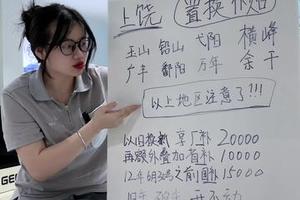 上饶 置换补贴
玉山 铅山 弋阳 横峰
广丰 鄱阳 万年 余干
以上地区注意了!!!
以旧换新 享厂补 20000
再额外叠加省补 10000
之前国补 15000
GE